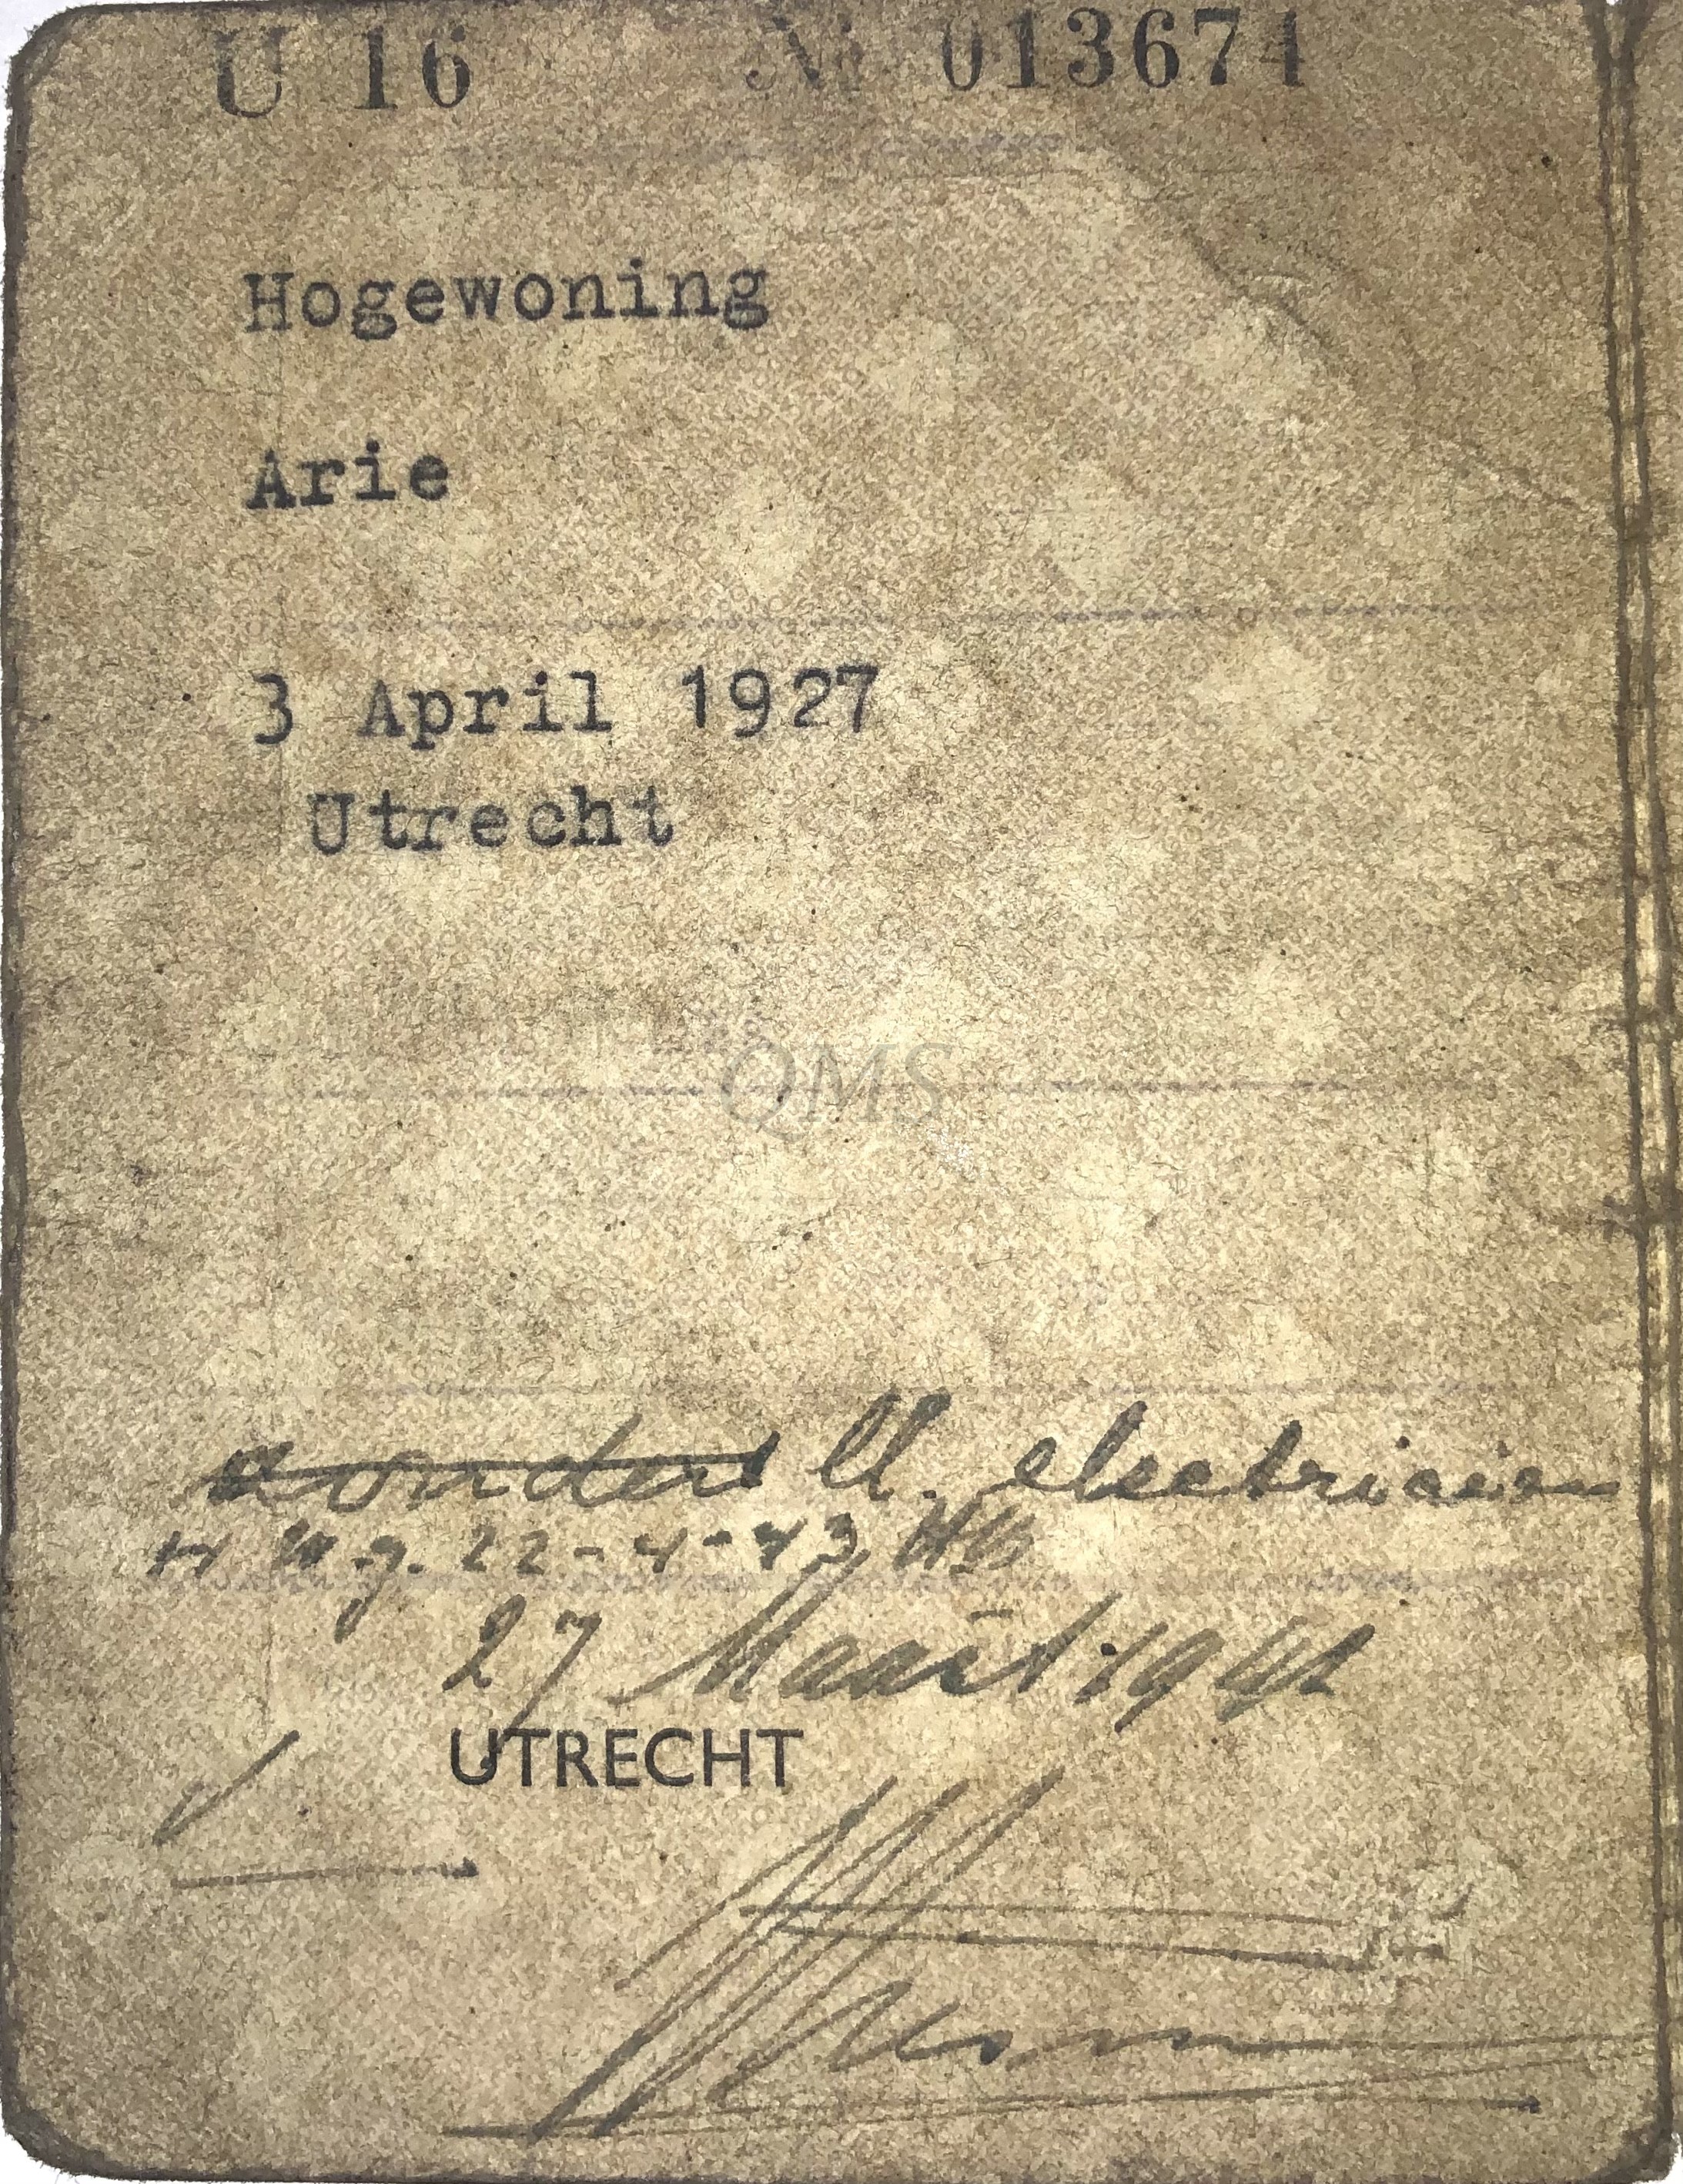 U 16 Nr 013674
Hogewoning
Arie
3 April 1927
Utrecht
QMS
zonder ll. electricien
W.g. 22-4-43
27 Maart 1942
UTRECHT